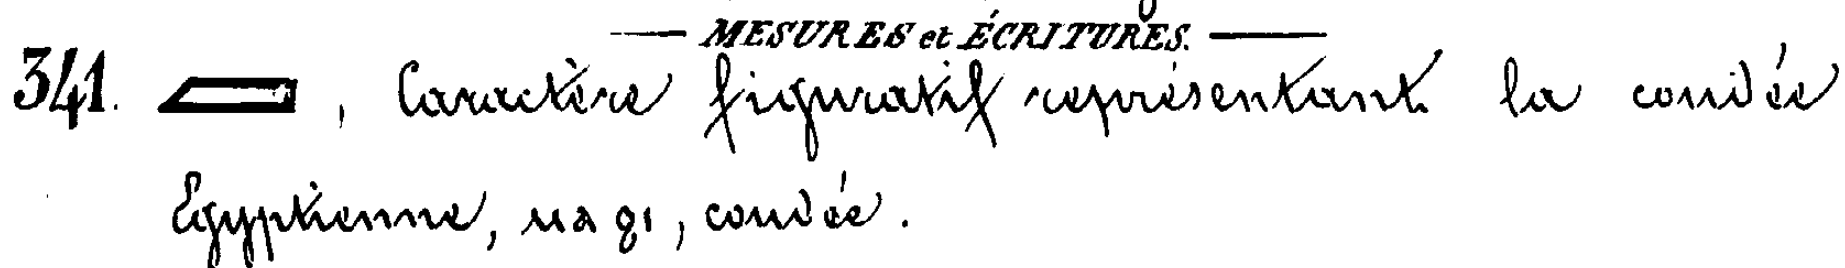 — MESURES et ÉCRITURES. —
341. , Caractère figuratif représentant la coudée
Egyptienne, ⲙⲁϩⲓ, coudée.